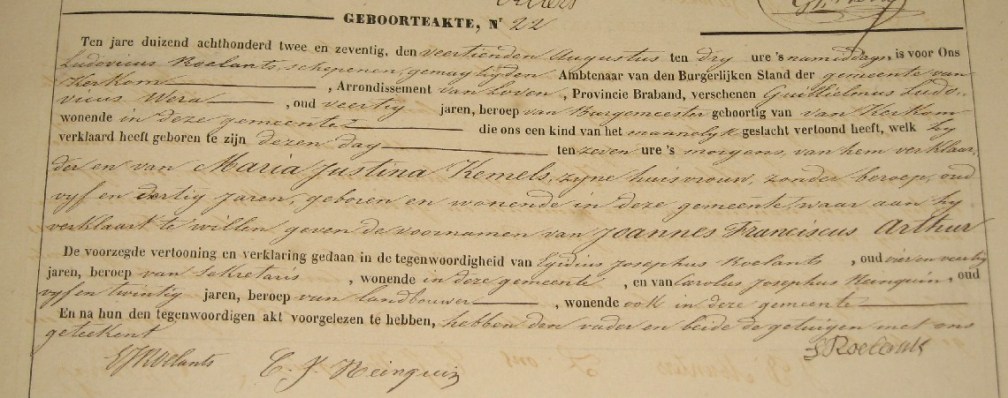 GEBOORTEAKTE, N.r 22
Ten jare duizend achthonderd twee en zeventig, den veertienden Augustus ten dry ure 's namiddags, is voor Ons
Ludovicus Roelants, schepenen, gemagtigden Ambtenaar van den Burgerlijken Stand der gemeente van
Kerkom, Arrondissement van Loven, Provincie Braband, verschenen Guillielmus Ludo-
vicus Wera, oud veertig jaren, beroep van Burgemeester geboortig van van Kerkom
wonende in deze gemeente die ons een kind van het mannelyk geslacht vertoond heeft, welk hy
verklaard heeft geboren te zijn dezen dag ten zeven ure 's morgens, van hem verklaar-
der en van Maria Justina Kemels, zyne huisvrouw, zonder beroep, oud
vyf en dertig jaren, geboren en wonende in deze gemeente, waar aan hy
verklaart te willen geven de voornamen van Joannes Franciscus Arthur
De voorzegde vertooning en verklaring gedaan in de tegenwoordigheid van Egidius Josephus Roelants, oud vier en veertig
jaren, beroep van Sekretaris, wonende in deze gemeente, en van Carolus Josephus Heinquin, oud
vyf en twintig jaren, beroep van Landbouwer, wonende ook in deze gemeente
En na hun den tegenwoordigen akt voorgelezen te hebben, hebben den vader en beide de getuigen met ons
geteekent
EJRoelants C. J. Heinquin LRoelants